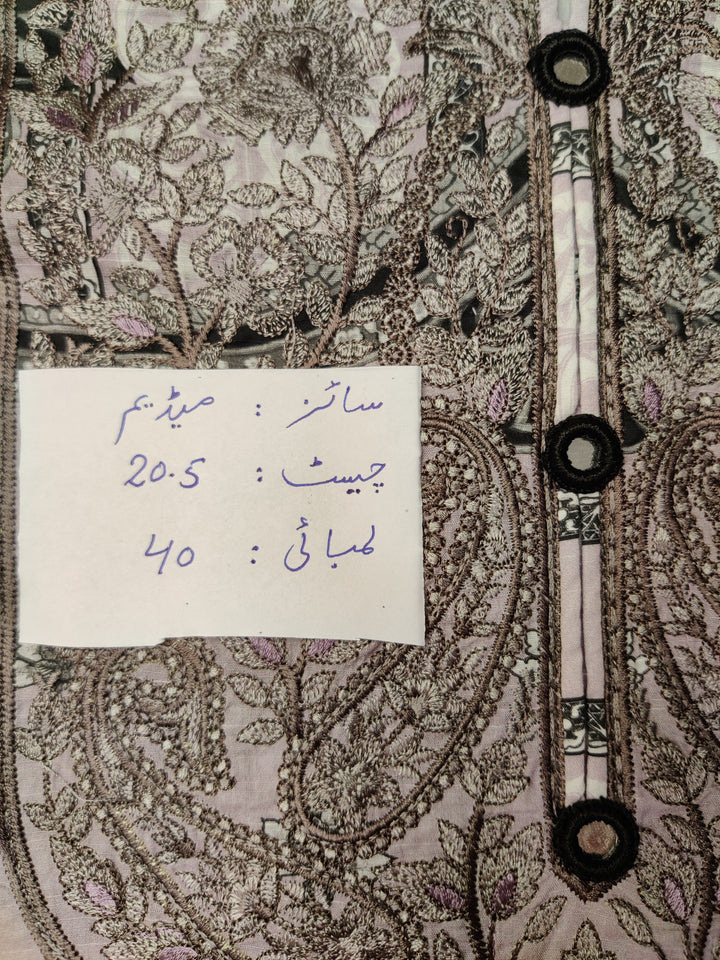 سائز : میڈیم
چیسٹ : 20.5
لمبائی : 40